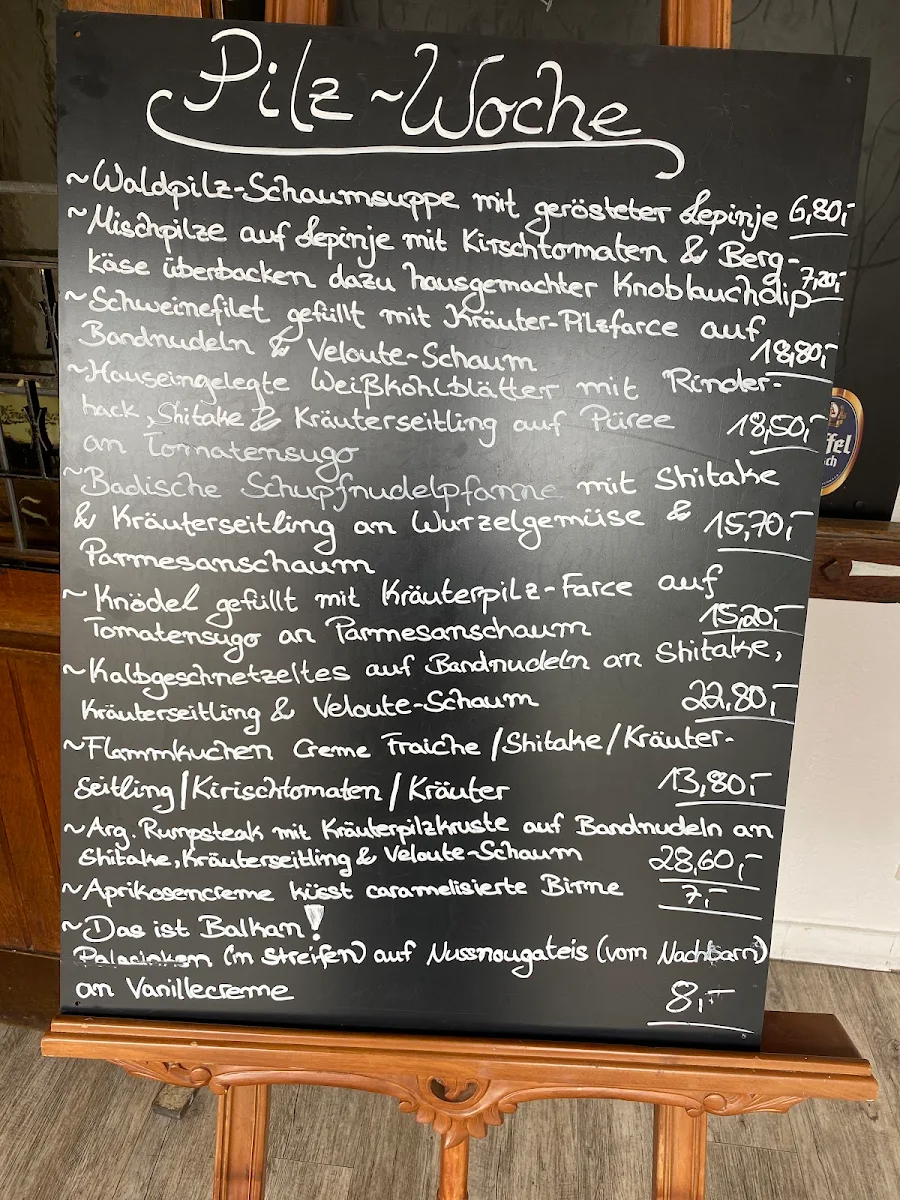 Pilz~Woche
~Waldpilz-Schaumsuppe mit gerösteter Lepinje 6,80,-
~Mischpilze auf Lepinje mit Kirschtomaten & Berg-
käse überbacken dazu hausgemachter Knoblauchdip 7,20,-
~Schweinefilet gefüllt mit Kräuter-Pilzfarce auf
Bandnudeln & Veloute-Schaum 18,80,-
~Hauseingelegte Weißkohlblätter mit Rinder-
hack, Shitake & Kräuterseitling auf Püree 18,50,-
an Tomatensugo
~Badische Schupfnudelpfanne mit Shitake
& Kräuterseitling an Wurzelgemüse & 15,70,-
Parmesanschaum
~Knödel gefüllt mit Kräuterpilz-Farce auf
Tomatensugo an Parmesanschaum 15,20,-
~Kalbgeschnetzeltes auf Bandnudeln an Shitake,
Kräuterseitling & Veloute-Schaum 22,80,-
~Flammkuchen Creme Fraiche/Shitake/Kräuter-
Seitling/Kirischtomaten/Kräuter 13,80,-
~Arg. Rumpsteak mit Kräuterpilzkruste auf Bandnudeln an
Shitake, Kräuterseitling & Veloute-Schaum 28,60,-
~Aprikosencreme küsst caramelisierte Birne 7,-
~Das ist Balkan!
Palacinken (in Streifen) auf Nussnougateis (vom Nachbarn)
an Vanillecreme 8,-